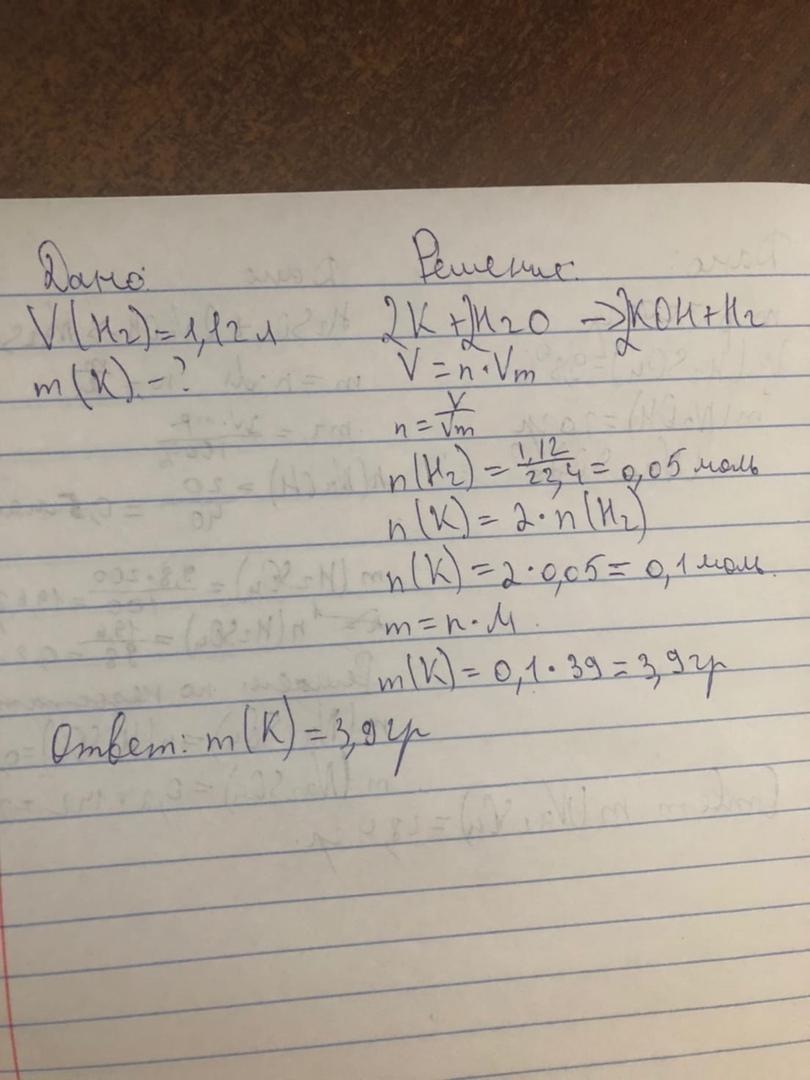 Дано:
V(H2)=1,12 л
m(K) -?
Решение:
2K + 2H2O → 2KOH + H2
V = n · Vm
n = V/Vm
n(H2) = 1,12/22,4 = 0,05 моль
n(K) = 2 · n(H2)
n(K) = 2 · 0,05 = 0,1 моль.
m = n · M.
m(K) = 0,1 · 39 = 3,9 гр
Ответ: m(K) = 3,9 гр